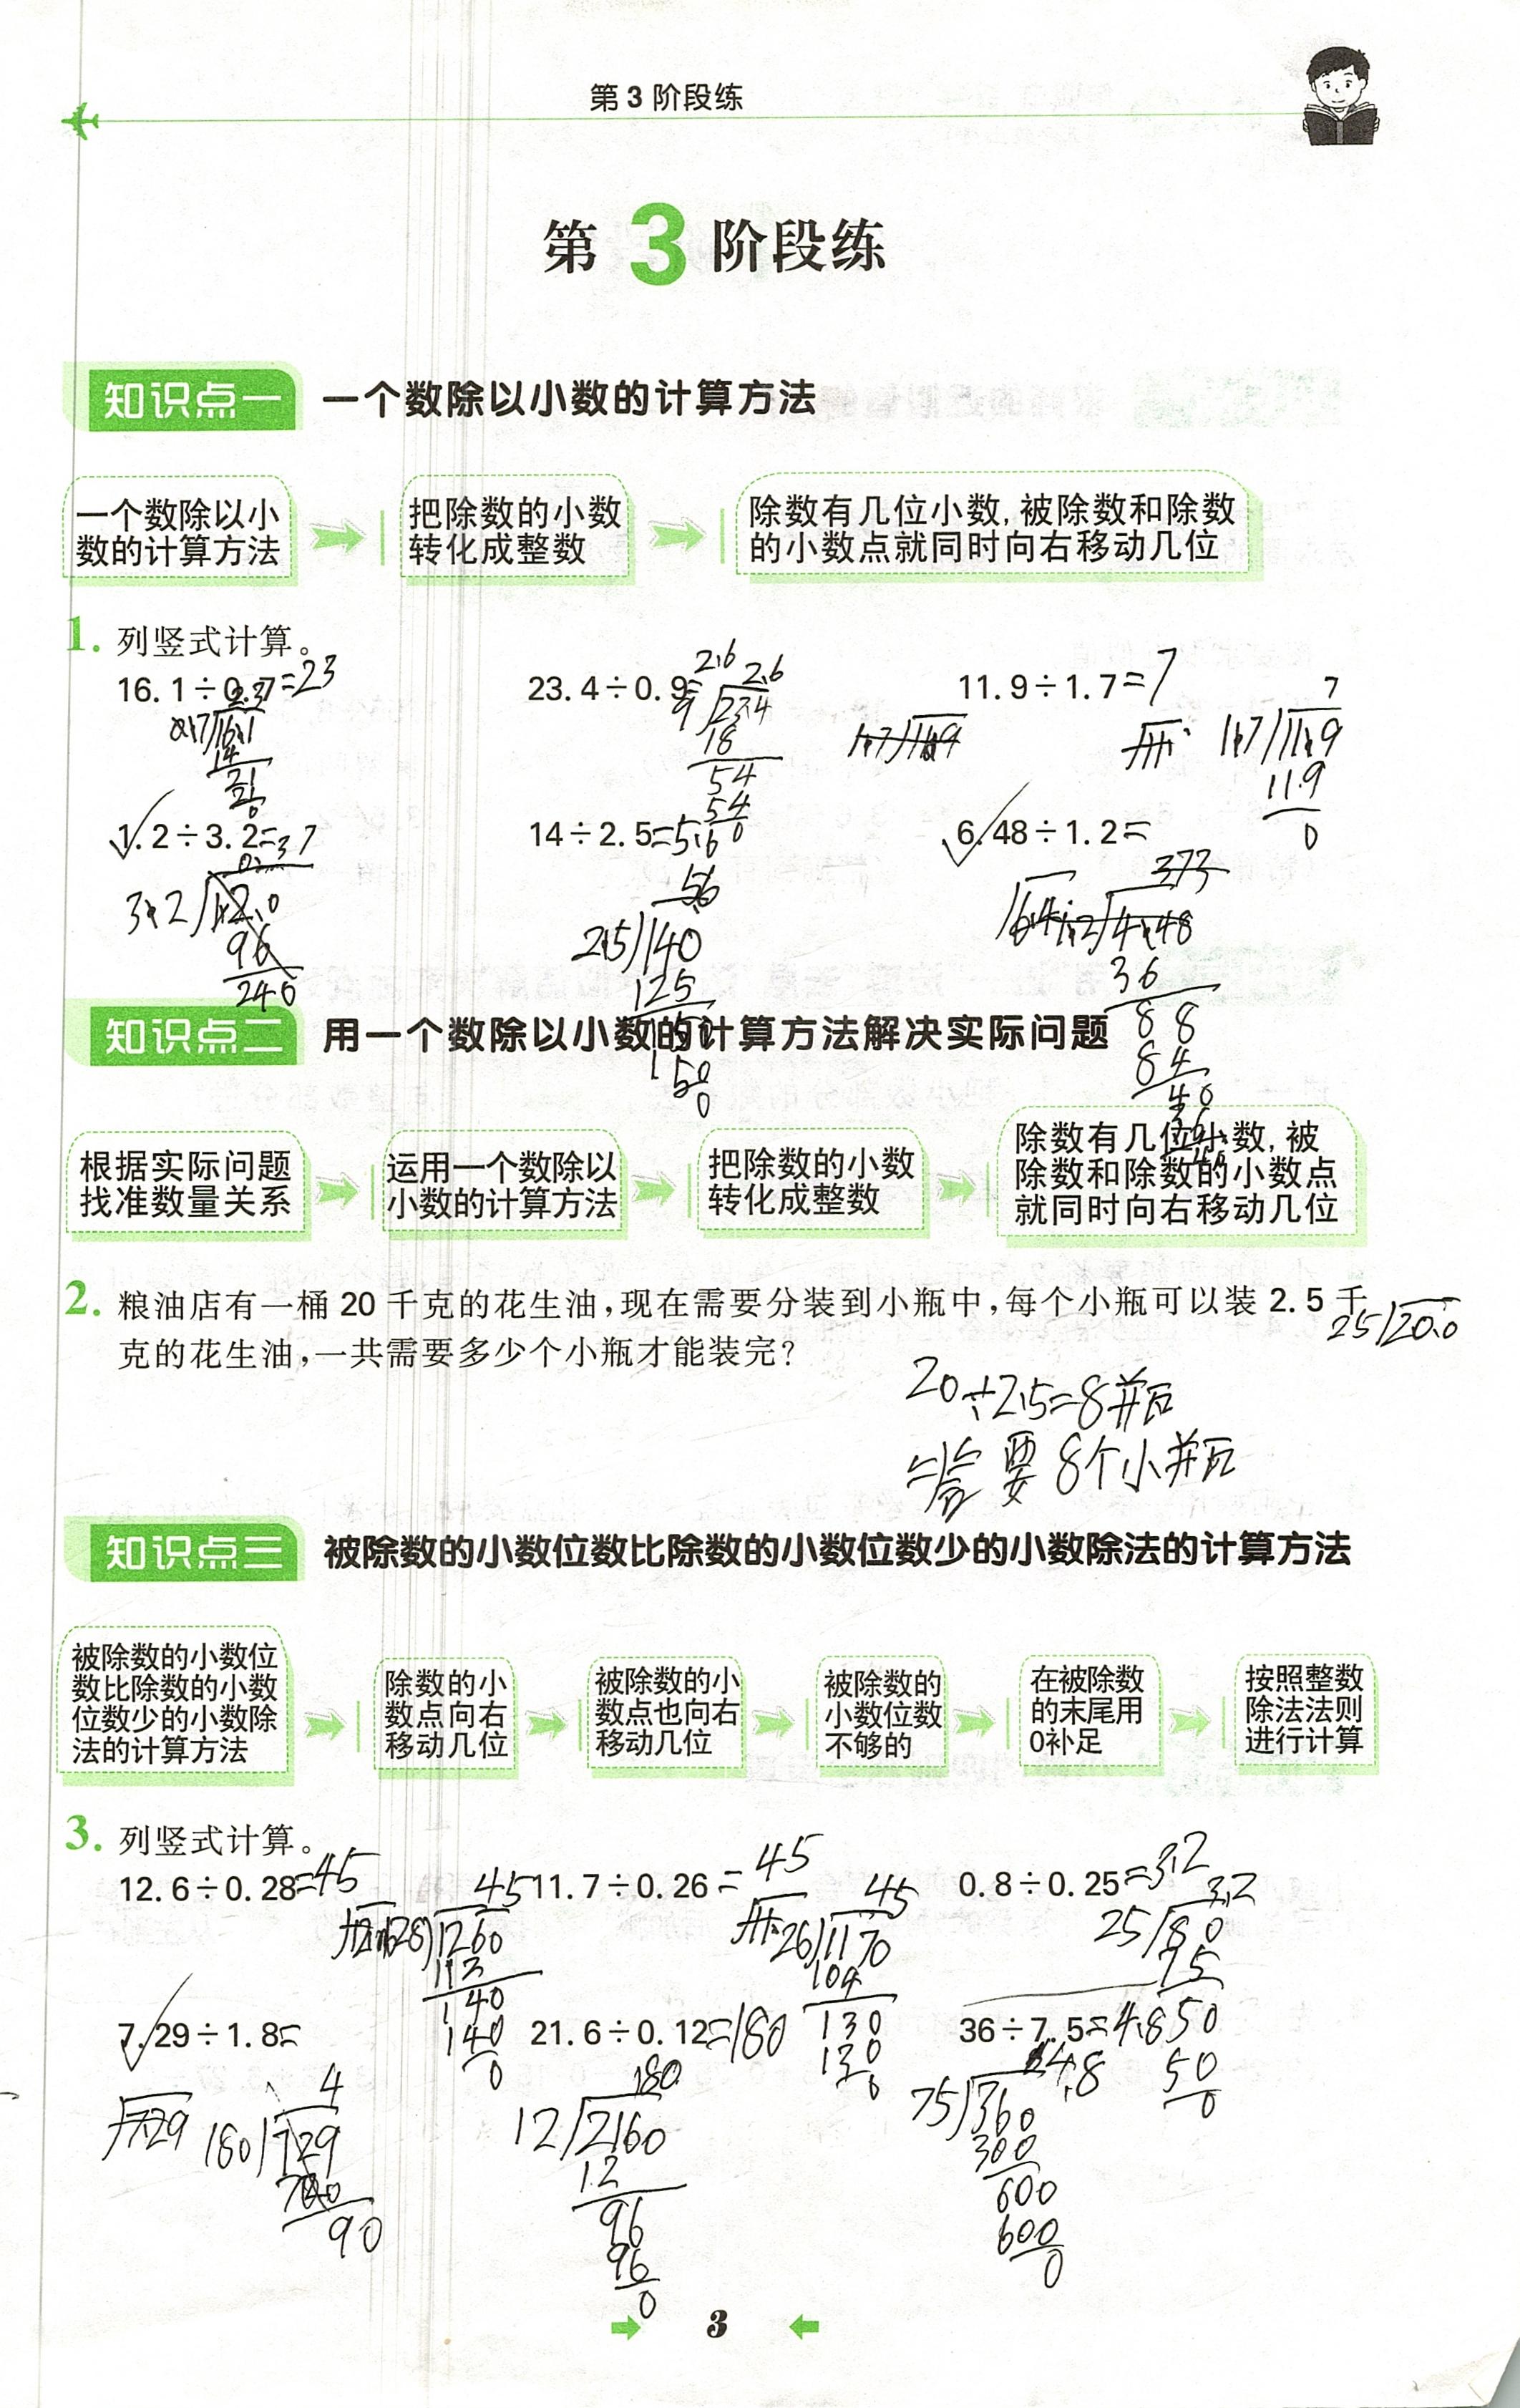 第 3 阶段练
第 3 阶段练
知识点一 一个数除以小数的计算方法
一个数除以小
数的计算方法
把除数的小数
转化成整数
除数有几位小数,被除数和除数
的小数点就同时向右移动几位
1. 列竖式计算。
16.1÷0.7=23
23.4÷0.9=2.6
11.9÷1.7=7
2.6
9 23.4
18
54
54
0
7
1.7 11.9
11.9
0
1.2÷3.2=
14÷2.5=5.6
6.48÷1.2=
3.2 12.0
96
240
56
2.5 140
125
150
150
0
373
1.2 4.48
36
88
84
40
36
知识点二 用一个数除以小数的计算方法解决实际问题
根据实际问题
找准数量关系
运用一个数除以
小数的计算方法
把除数的小数
转化成整数
除数有几位小数,被
除数和除数的小数点
就同时向右移动几位
2. 粮油店有一桶 20 千克的花生油,现在需要分装到小瓶中,每个小瓶可以装 2.5 千
克的花生油,一共需要多少个小瓶才能装完?
25 20.0
20÷2.5=8瓶
要 8个小瓶
知识点三 被除数的小数位数比除数的小数位数少的小数除法的计算方法
被除数的小数位
数比除数的小数
位数少的小数除
法的计算方法
除数的小
数点向右
移动几位
被除数的小
数点也向右
移动几位
被除数的
小数位数
不够的
在被除数
的末尾用
0补足
按照整数
除法法则
进行计算
3. 列竖式计算。
12.6÷0.28=45
11.7÷0.26=45
0.8÷0.25=3.2
45
28 1260
112
140
140
0
45
26 1170
104
130
130
0
3.2
25 80
75
50
50
0
7.29÷1.8=
21.6÷0.12=180
36÷7.5=4.8
4
180 729
90
180
12 2160
12
96
96
0
4.8
75 360
300
600
600
0
3